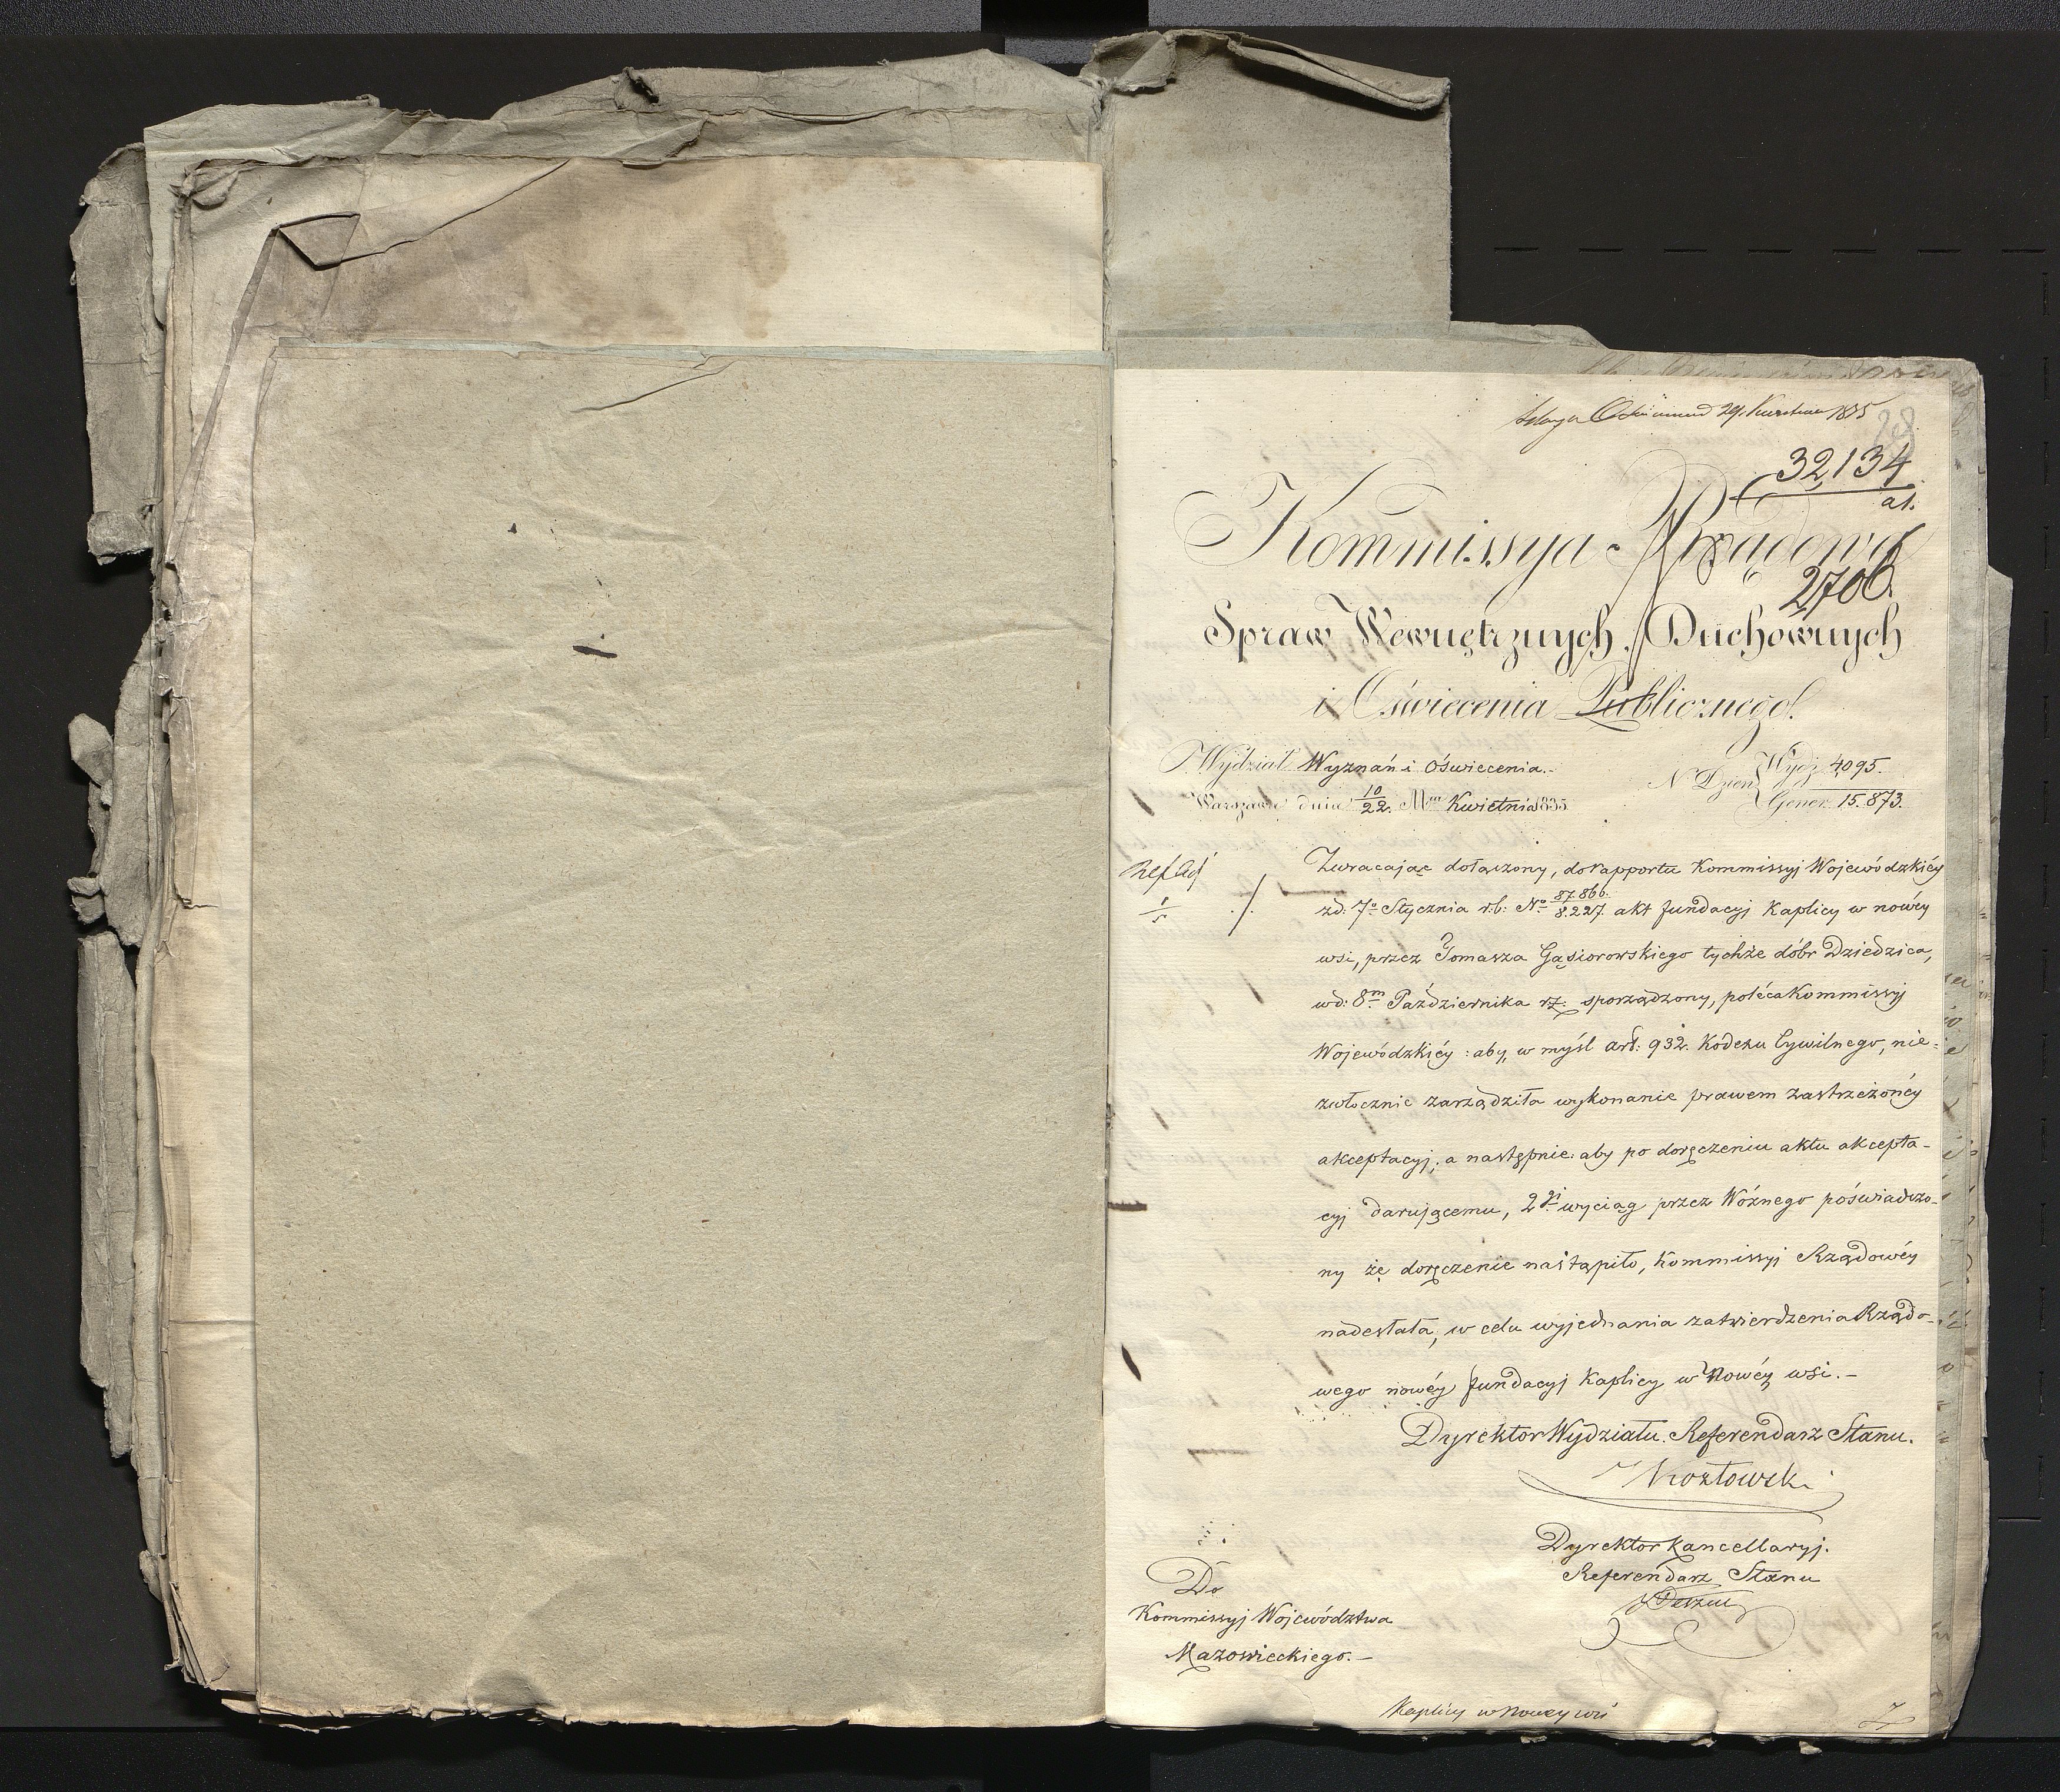 29. Kwietnia 1835
32,134
at.
Kommissya Rządowa
2706.
Spraw Wewnętrznych, Duchownych
i Oświecenia Publicznego.
Wydział Wyznań i Oświecenia.-
N Dzien Wydz. 4095.
Warszawa dnia 10/22. Mca Kwietnia 1835
Gener. 15.873.
Zwracając dołączony, do rapportu Kommissyj Wojewódzkiéy
zd: 7o Stycznia r.b: No 87.866./8.227. akt fundacyj Kaplicy w nowéy
wsi, przez Tomasza Gąsiorowskiego tychże dóbr Dziedzica,
wd: 8m Października rz: sporządzony, poléca Kommissyj
Wojewódzkiéy: aby, w myśl art: 932. Kodexu Cywilnego, nie-
zwłocznie zarządziła wykonanie prawem zastrzeżonéy
akceptacyj; a następnie: aby po doręczeniu aktu akcepta-
cyj darującemu, 2gi wyciąg przez Woźnego poświadczo-
ny że doręczenie nastąpiło, Kommissyj Rządowéy
nadesłała, w celu wyjednania zatwierdzenia Rządo-
wego nowéy fundacyj Kaplicy w Nowéy wsi.-
Dyrektor Wydziału. Referendarz Stanu.
Kozłowski
Dyrektor Kancellaryj.
Referendarz Stanu
Do
Kommissyj Województwa
Mazowieckiego.-
Kaplicy w Nowey wsi